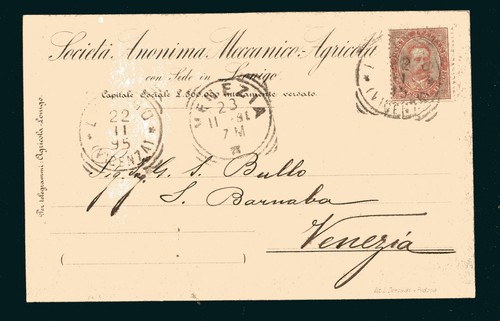 Società Anonima Meccanico-Agricola
con Sede in Lonigo
Capitale Sociale L. 300.000 interamente versato.
Per telegrammi: Agricola-Lonigo
22
II
95
(VICENZA)
VENEZIA
23
II
7 M
(VICENZA)
Sig. Ing. G. S. Bullo
S. Barnaba
Venezia